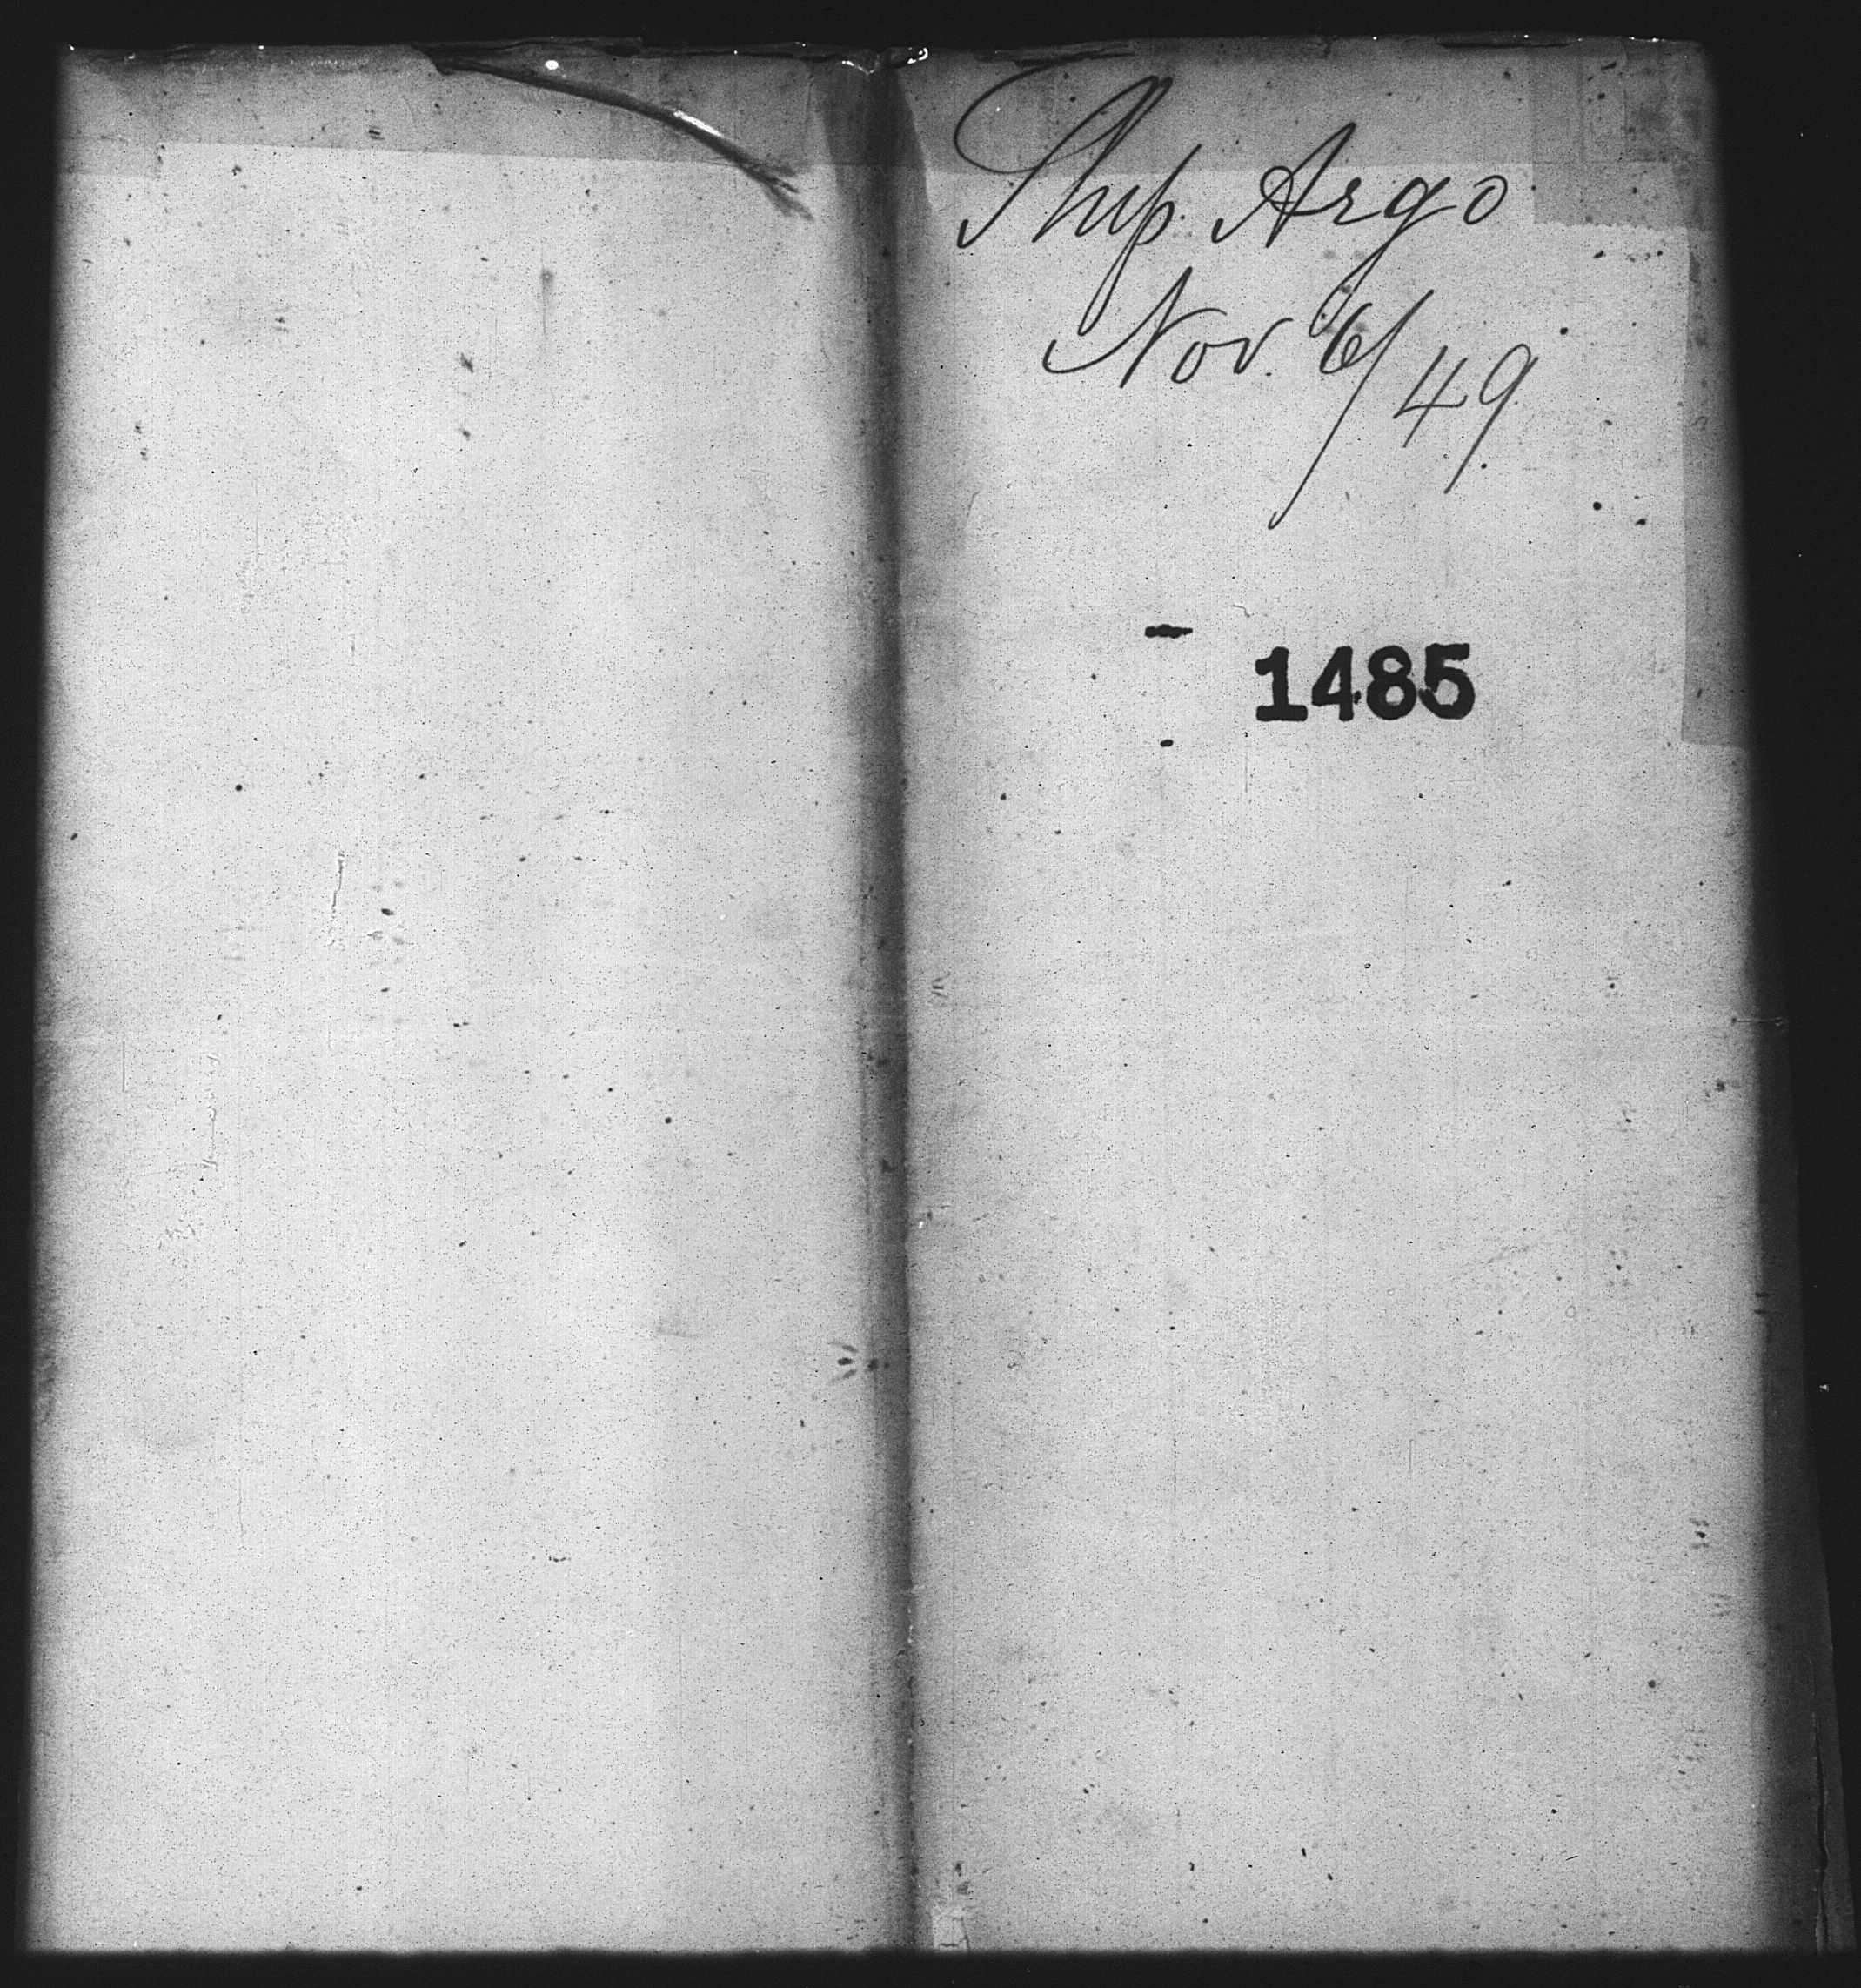 Ship Argo
Nov. 6/49
1485